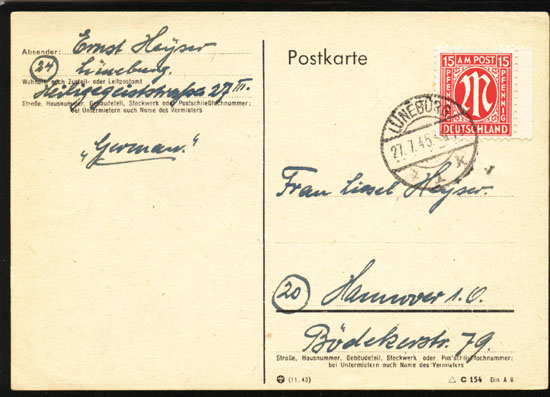 Absender: Ernst Heyser
24 Lüneburg,
Wohnort, auch Zustell- oder Leitpostamt
Heiligegeiststraße 27 III.
Straße, Hausnummer, Gebäudeteil, Stockwerk oder Postschließfachnummer;
bei Untermietern auch Name des Vermieters
„German."
Postkarte
15 AM POST 15
PFENNIG PFENNIG
M
DEUTSCHLAND
LÜNEBURG
27.7.45.
Frau Liesel Heyser.
20 Hannover 1.O.
Bödekerstr. 79
Straße, Hausnummer, Gebäudeteil, Stockwerk oder Postschließfachnummer;
bei Untermietern auch Name des Vermieters
(11. 43)
C 154 Din A 6